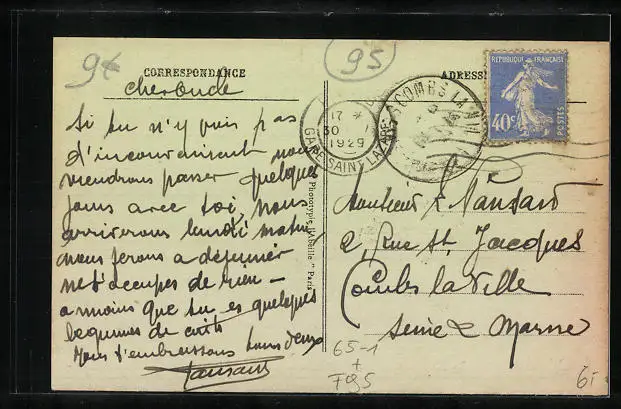 9€
95
CORRESPONDANCE
ADRESSE
REPUBLIQUE FRANÇAISE
40c
POSTES
COMBS LA VILLE
17 *
30
1929
GARE SAINT LAZARE
cher oncle
Si tu n'y vois pas
d'inconvenient nous
viendrons passer quelques
jours avec toi, nous
arriverons lundi matin
nous ferons a déjeuner
ne t'occupes de rien —
a moins que tu es quelques
legumes de cuits
Nous t'embrassons tous deux
Phototypie "Abeille" Paris
Monsieur L
2, Rue St. Jacques
Combs la Ville
Seine & Marne
65-1
+
F95
6i